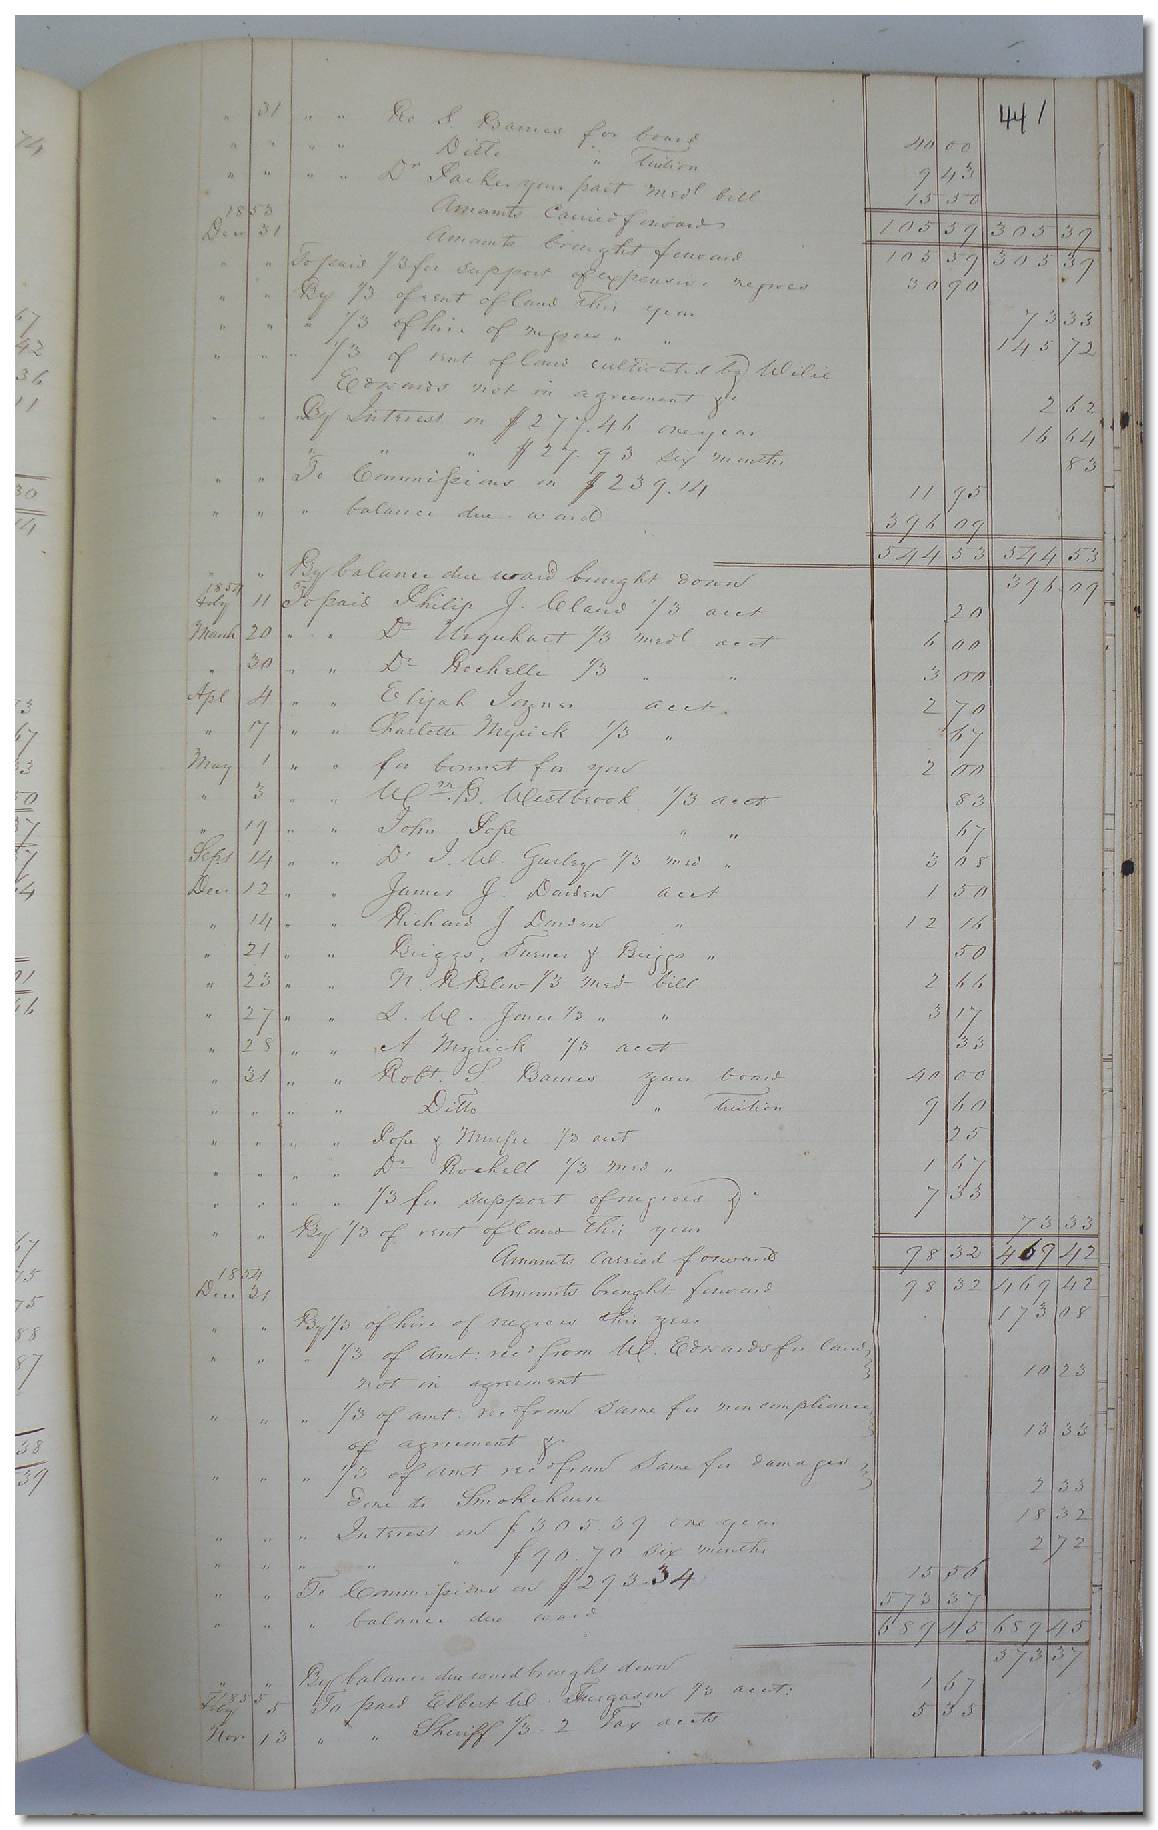 441
" 31 " " Ro S. Barnes for board 40 00
" " " " Ditto " Tuition 9 43
" " " " Dr Parker your part medl bill 15 50
Amounts carried forward 105 59 305 39
1853 Dec 31 Amounts brought forward 105 59 305 39
" " To paid 1/3 for support of expensive negroes 30 90
" " By 1/3 of rent of land this year 73 33
" " " 1/3 of hire of negroes " " 145 72
" " " 1/3 of rent of land cultivated by Wilie
Edwards not in agreement &c 2 62
" " By Interest on $277.46 one year 16 64
" " " $27.93 six months 83
" " To Commissions on $239.14 11 95
" " " balance due ward 396 09
544 53 544 53
" " By balance due ward brought down 396 09
1854 Feby 11 To paid Philip J. Claud 1/3 acct 20
March 20 " " Dr Urquhart 1/3 medl acct 6 00
" 30 " " Dr Rochelle 1/3 " " 3 00
Apl 4 " " Elijah Joyner acct 2 70
" 17 " " Charlotte Myrick 1/3 " 67
May 1 " " for bonnet for you 2 00
" 3 " " Wm B. Westbrook 1/3 acct 83
" 19 " " John Pope " " 67
Sept 14 " " Dr J. W. Gurley 1/3 med " 3 08
Dec 12 " " James J. Darden acct 1 50
" 14 " " Richard J Darden " 12 16
" 21 " " Briggs, Turner & Briggs " 50
" 23 " " N. R Blow 1/3 med bill 2 66
" 27 " " L. W. Jones 1/3 " " 3 17
" 28 " " A Myrick 1/3 acct 33
" 31 " " Robt. S Barnes your board 40 00
" " " " Ditto " Tuition 9 60
" " " " Pope & 1/3 acct 25
" " " " Dr Rochell 1/3 med " 1 67
" " " " 1/3 for support of negroes &c 7 33
" " By 1/3 of rent of land this year 73 33
Amounts carried forward 98 32 469 42
1854 Dec 31 Amounts brought forward 98 32 469 42
" " By 1/3 of hire of negroes this year 173 08
" " " 1/3 of amt: recd from W. Edwards for land
not in agreement 10 23
" " " 1/3 of amt. recd from same for noncompliance
of agreement &c 13 33
" " " 1/3 of amt recd from same for damages
done to Smokehouse 2 33
" " " Interest on $305.39 one year 18 32
" " " " " $90.70 six months 2 72
" " To Commissions on $293.34 15 56
" " " balance due ward 573 37
689 45 689 45
" " By balance due ward brought down 573 37
1855 Feby 5 To paid Elbert W. Furgason 1/3 acct: 1 67
Nov 13 " " Sheriff 1/3 2 Tax accts 5 35